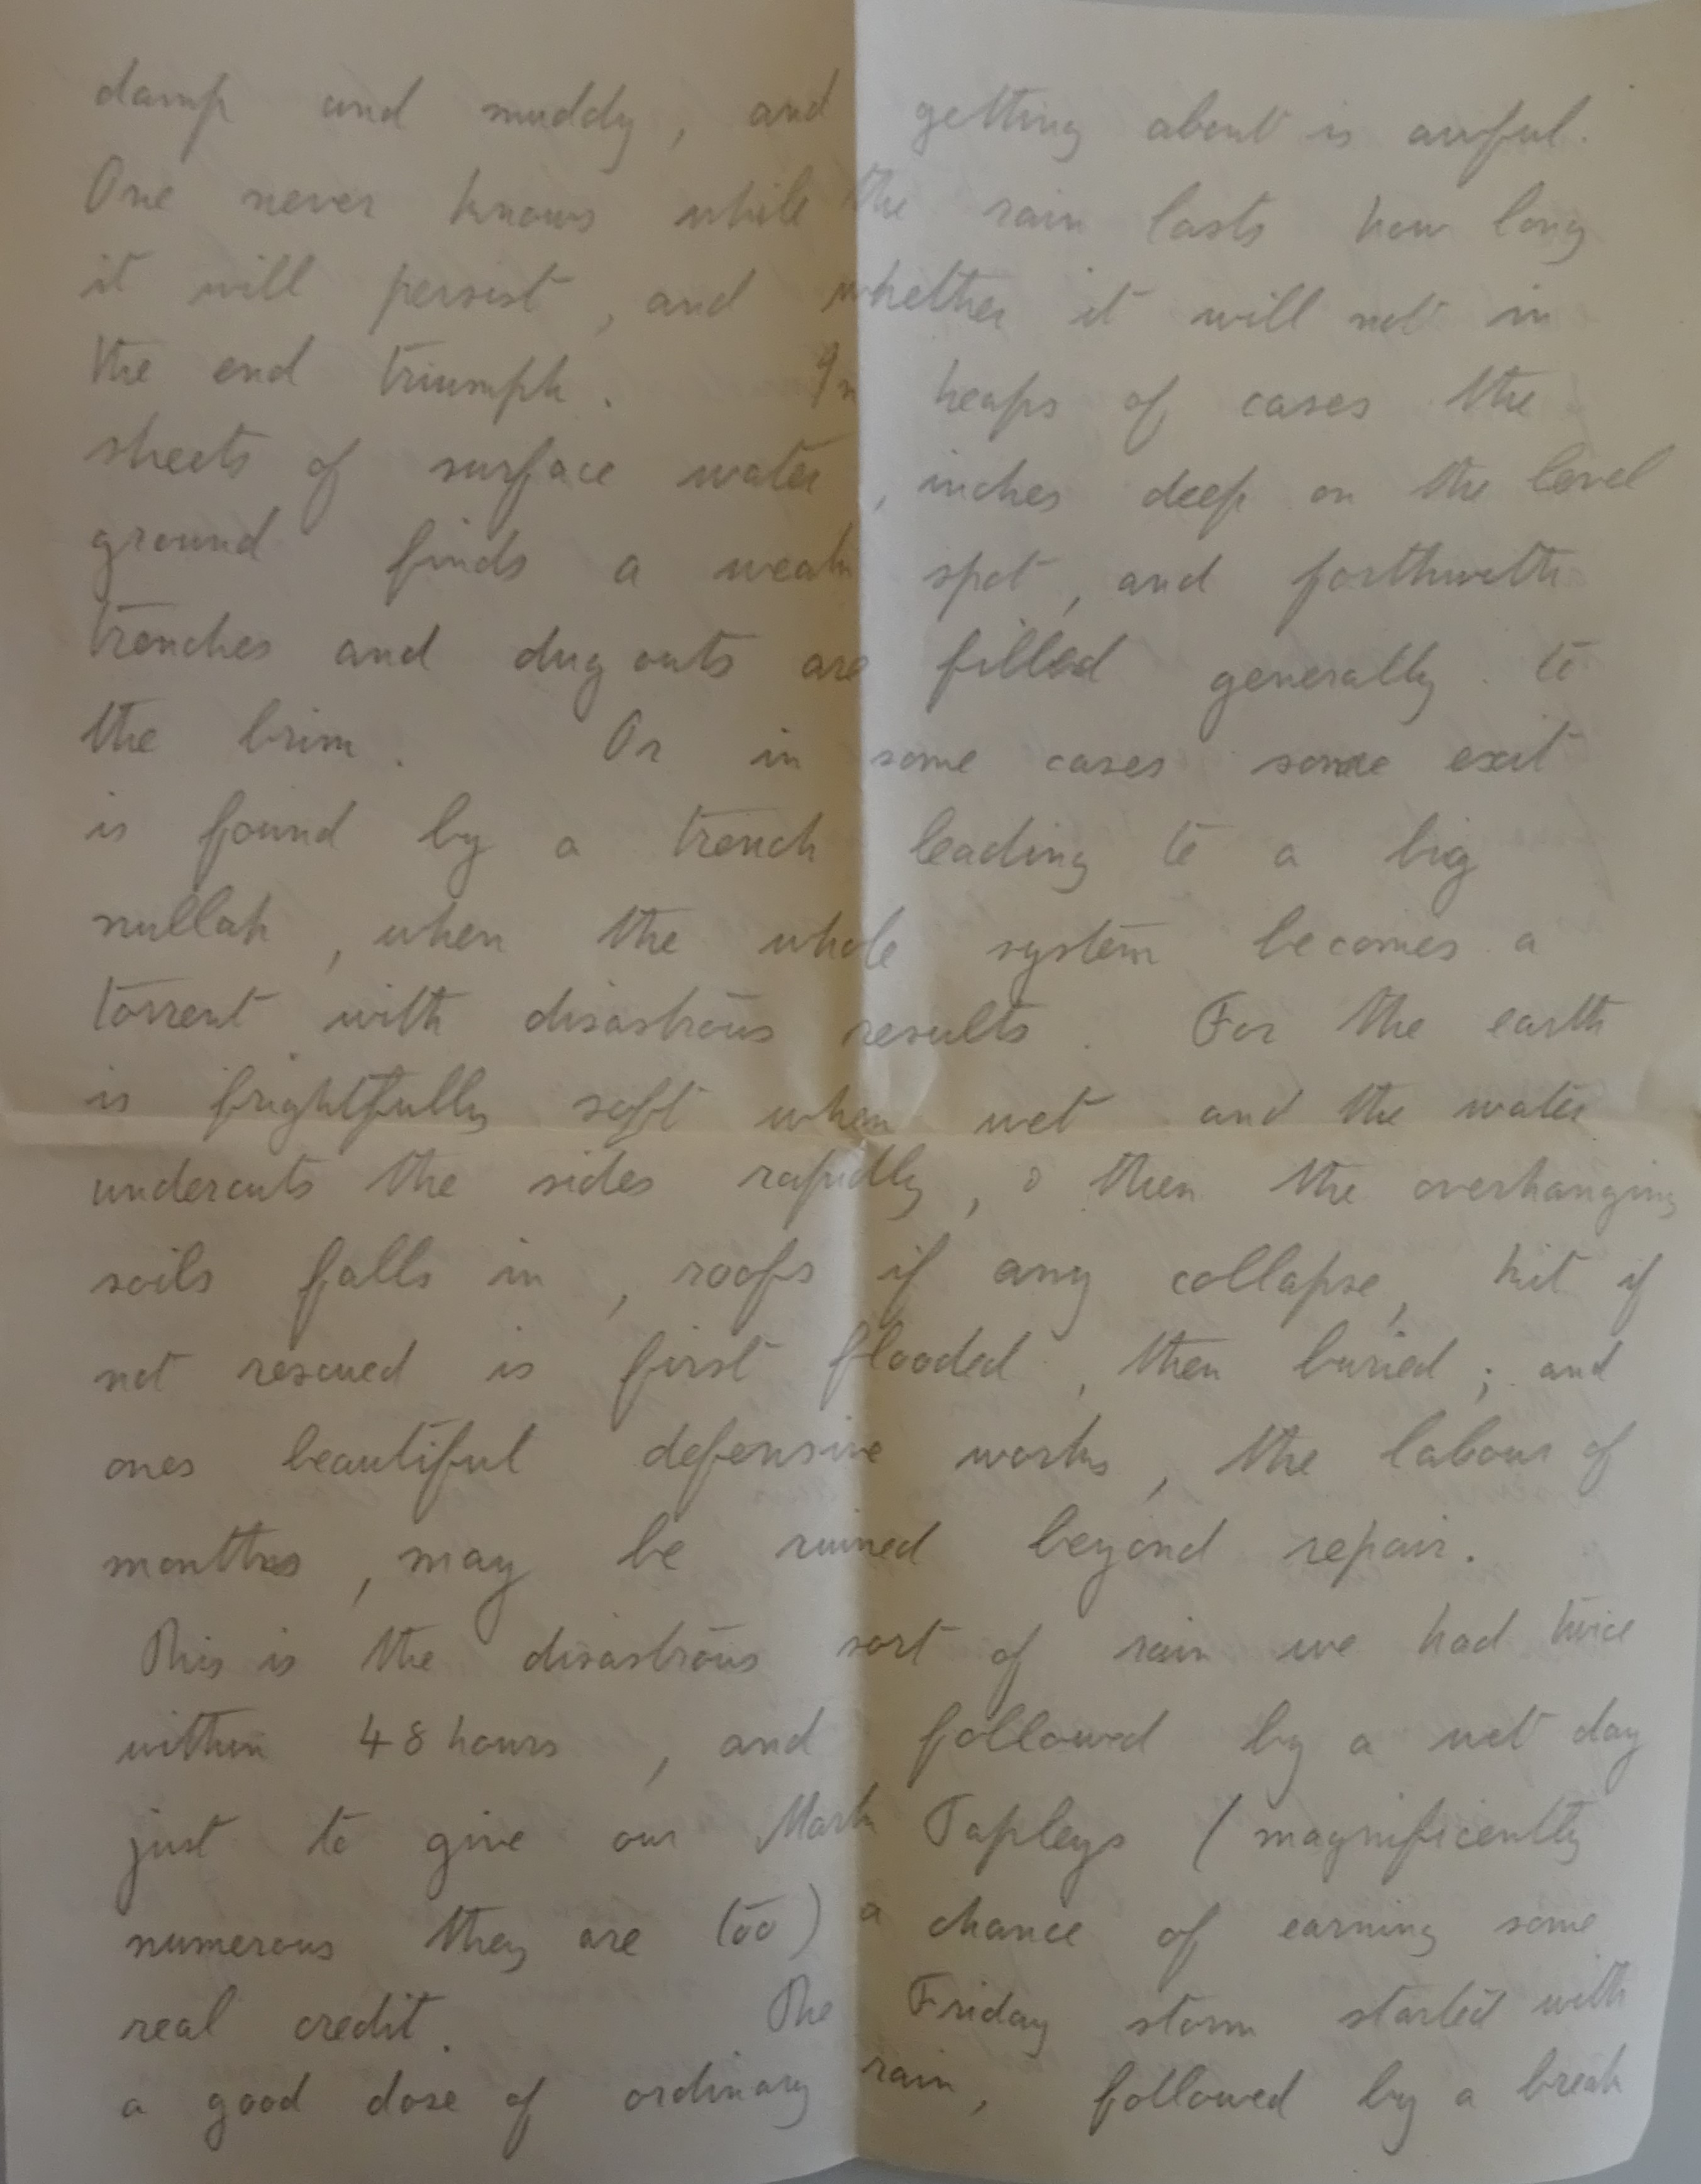 damp and muddy, and getting about is awful.
One never knows while the rain lasts how long
it will persist, and whether it will not in
the end triumph. In heaps of cases the
sheets of surface water, inches deep on the level
ground finds a weak spot, and forthwith
trenches and dug outs are filled generally to
the brim. Or in some cases some exit
is found by a trench leading to a big
nullah, when the whole system becomes a
torrent with disastrous results. For the earth
is frightfully soft when wet and the water
undercuts the sides rapidly, & then the overhanging
soils falls in, roofs if any collapse, kit if
not rescued is first flooded, then buried; and
ones beautiful defensive works, the labour of
months, may be ruined beyond repair.
This is the disastrous sort of rain we had twice
within 48 hours, and followed by a wet day
just to give our Mark Tapleys (magnificently
numerous they are too) a chance of earning some
real credit. The Friday storm started with
a good dose of ordinary rain, followed by a break